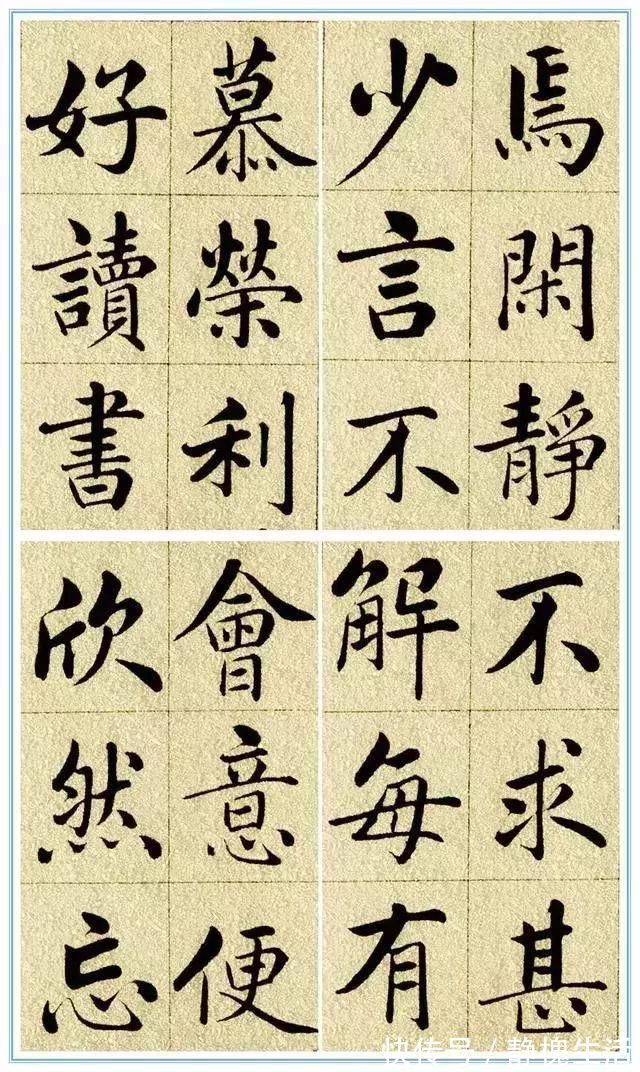 焉閑靜
少言不
慕榮利
好讀書
不求甚
解每有
會意便
欣然忘
快传号 /